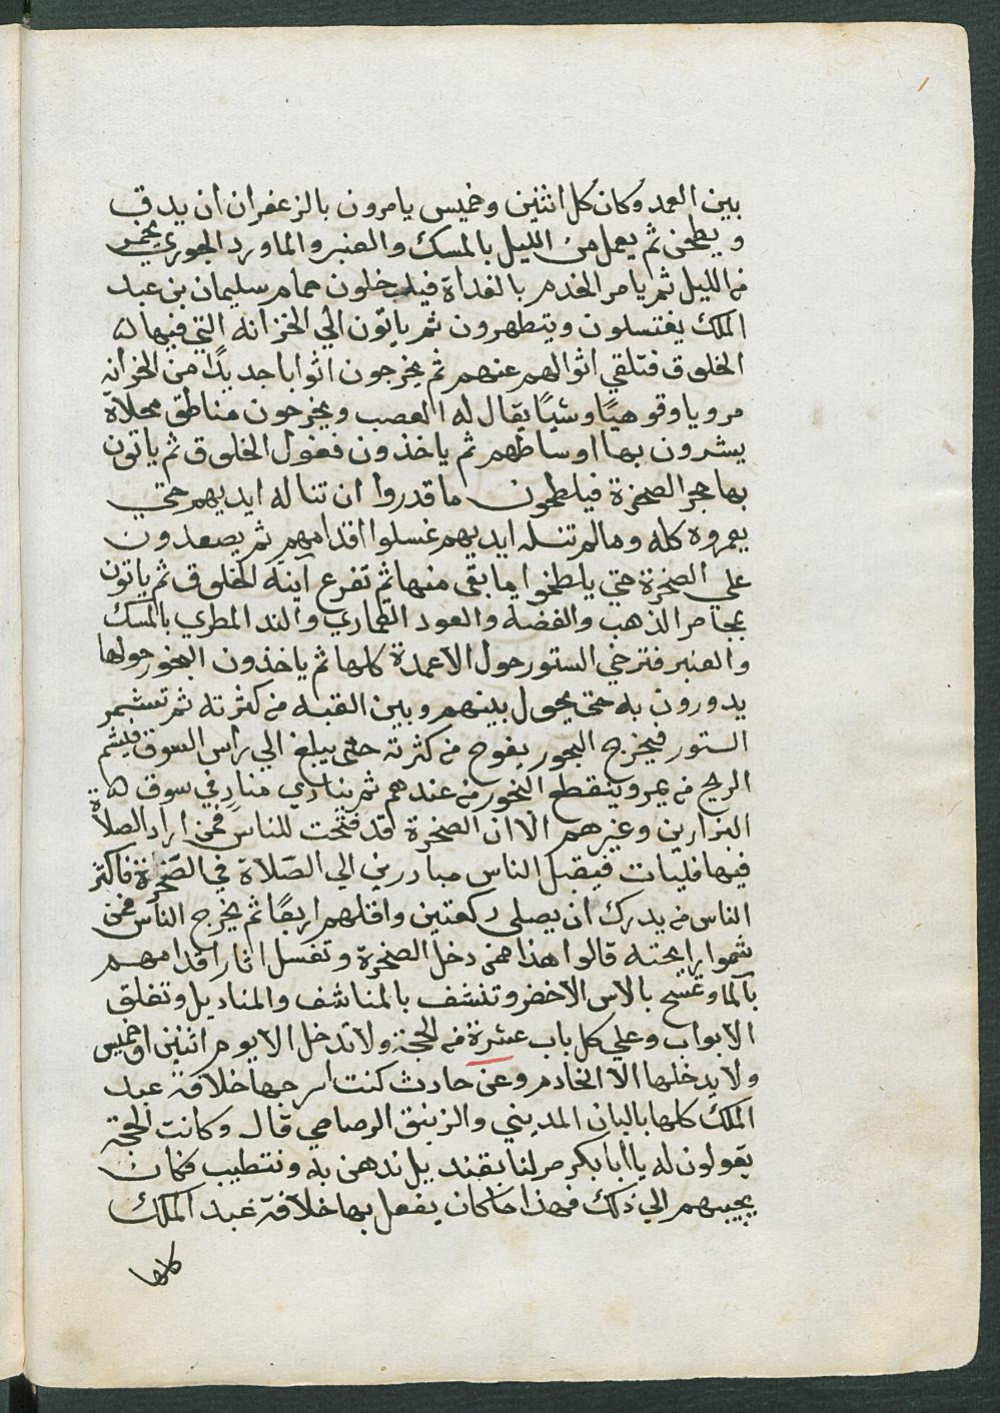 بين العمد وكان كل اثنين وخميس يامرون بالزعفران ان يدق
ويطحن ثم يعمل من الليل بالمسك والعنبر والماورد الجوري يخمر
من الليل ثم يامر الخدم بالغداة فيدخلون حمام سليمان بن عبد
الملك يغتسلون ويتطهرون ثم ياتون الي الخزانه التي فيها
الخلوق فتلقي اثوابهم عنهم ثم يخرجون اثوابا جديدًا من الخزانه
مرويا وقوهيًا وشيًا يقال له العصب ويخرجون مناطق محلاة
يشدون بها اوساطهم ثم ياخذون فغول الخلوق ثم ياتون
بها حجر الصخرة فيلطخون ما قدروا ان تناله ايديهم حتي
يغمروه كله ومالم تنله ايديهم غسلوا اقدامهم ثم يصعدون
علي الصخرة حتي يلطخوا ما بقي منها ثم تفرع آنية الخلوق ثم ياتون
بمجامر الذهب والفضة والعود القماري والند المطري بالمسك
والعنبر فترخي الستور حول الاعمدة كلها ثم ياخذون البخور حولها
يدورون به حتي يحول بينهم وبين القبه من كثرته ثم تشمر
الستور فيخرج البخور يفوح من كثرته حتي يبلغ الي راس السوق فيشم
الريح من يمر وينقطع البخور من عندهم ثم ينادي منادٍ في سوق
البزازين وغيرهم الا ان الصخرة قد فتحت للناس فمن اراد الصلاة
فيها فليات فيقبل الناس مبادرين الي الصّلاة في الصّخرة فاكثر
الناس من يدرك ان يصلي ركعتين واقلهم اربعًا ثم يخرج الناس فمن
شموا رايحته قالوا هذا ممن دخل الصخرة وتغسل اثار اقدامهم
بالما وتمسح بالاس الاخضر وتنشف بالمناشف والمناديل وتغلق
الابواب وعلي كل باب عشرة من الحجبة ولا تدخل الا يوم اثنين او خميس
ولا يدخلها الا الخادم وعن حادث كنت اسرجها خلافة عبد
الملك كلها بالبان المديني والزيبق الرصاصي قال وكانت الحجبة
يقولون له يا ابا بكر مر لنا بقنديل ندهن به ونتطيب فكان
يجيبهم الي ذلك فهذا ما كان يفعل بها خلافة عبد الملك
كلها